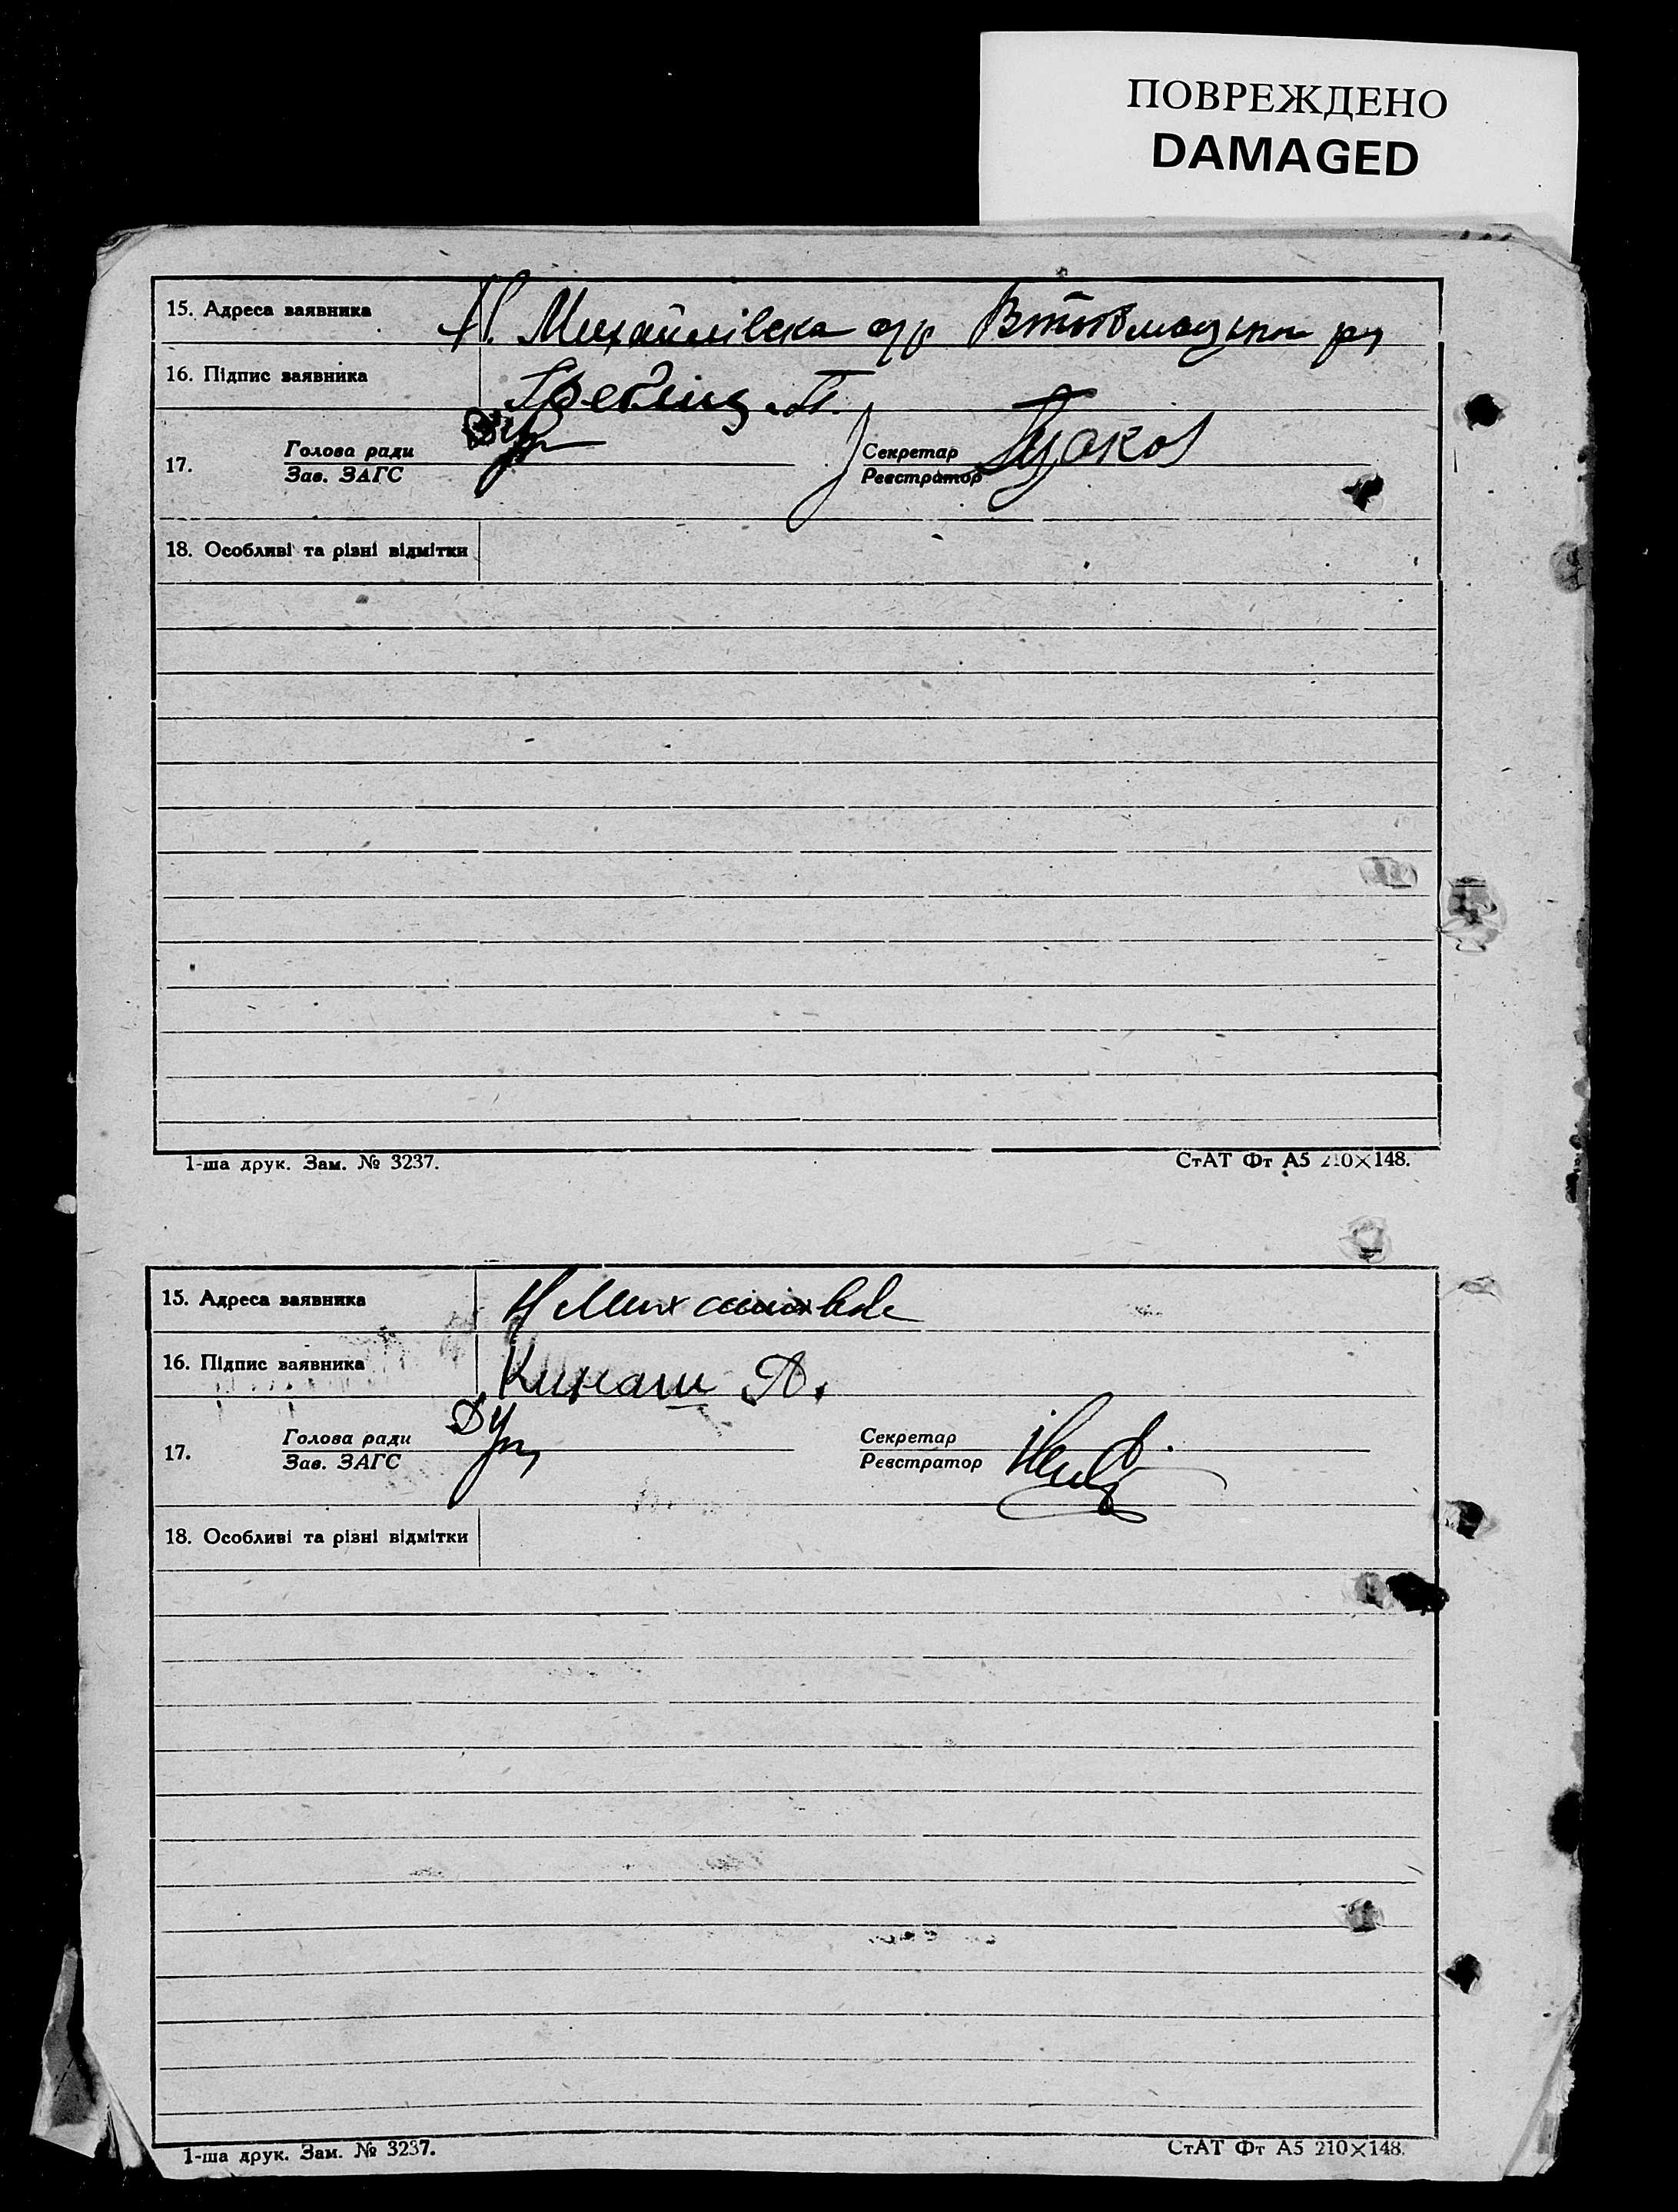 ПОВРЕЖДЕНО
DAMAGED
15. Адреса заявника Н. Михайлівска
16. Підпис заявника
17. Голова ради Секретар
Зав. ЗАГС Реєстратор
18. Особливі та різні відмітки
1-ша друк. Зам. № 3237. СтАТ Фт А5 210×148.
15. Адреса заявника
16. Підпис заявника Кинаш П.
17. Голова ради Секретар
Зав. ЗАГС Реєстратор
18. Особливі та різні відмітки
1-ша друк. Зам. № 3237. СтАТ Фт А5 210×148.